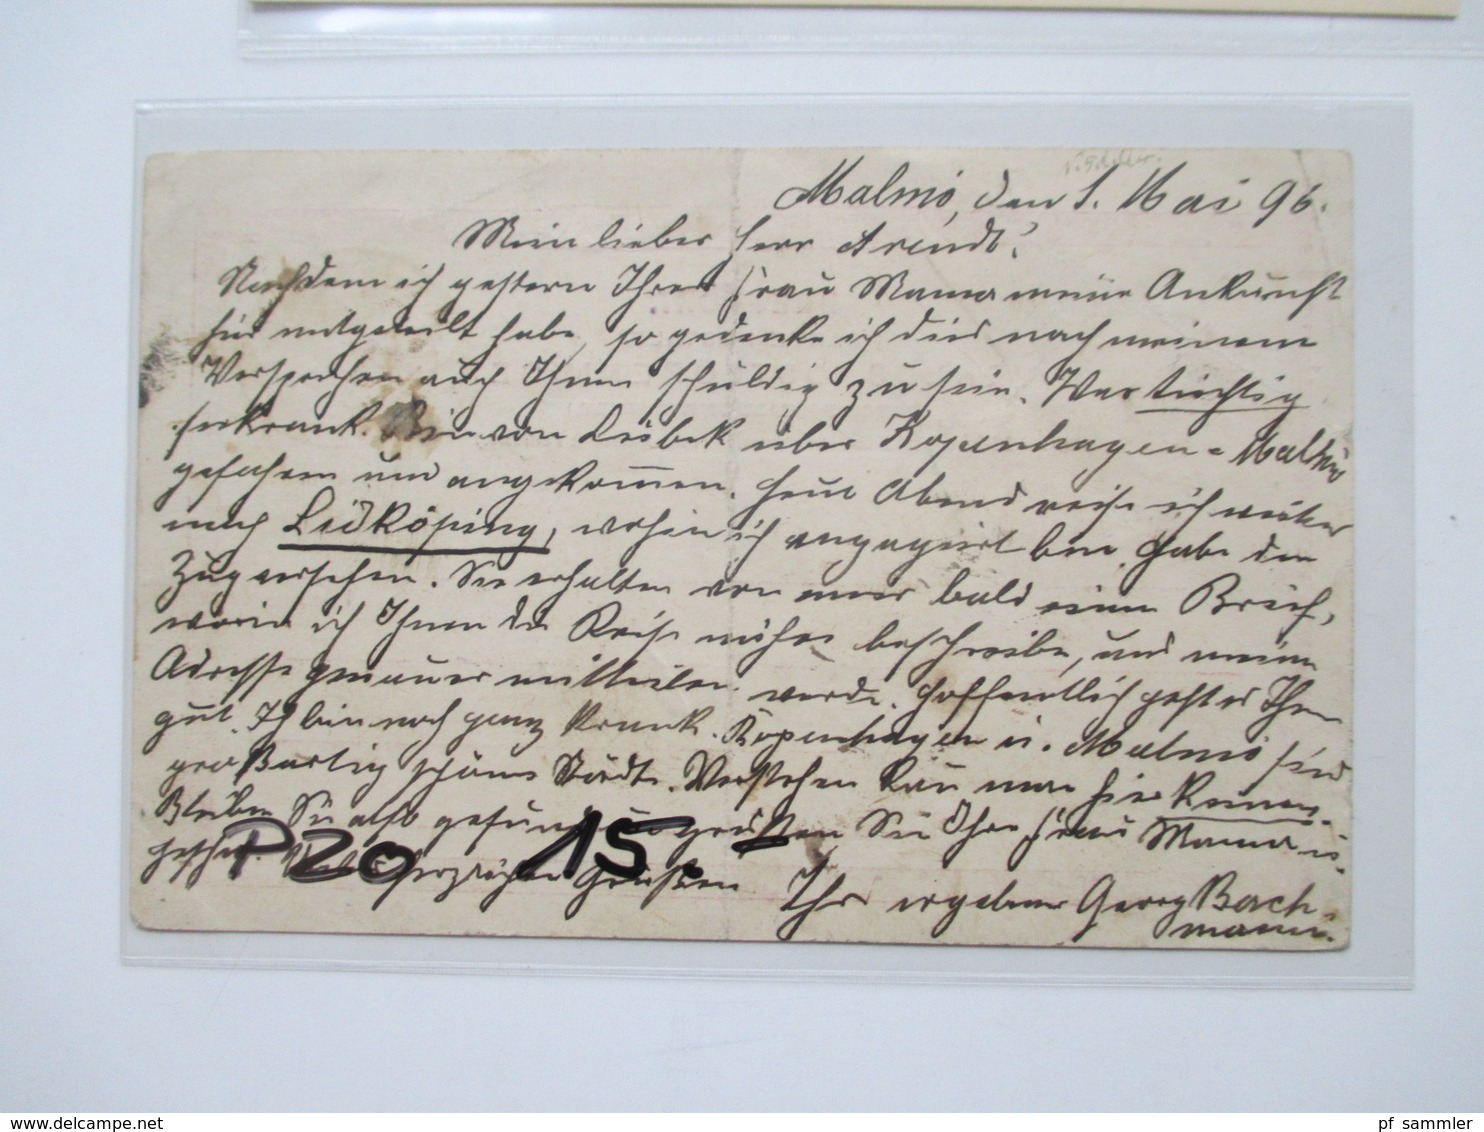 Malmö, den 1. Mai 96.
Mein lieber Herr Arendt!
Nachdem ich gestern Ihrer Frau Mama meine Ankunft
hier mitgeteilt habe, so gedenke ich dies nach meinem
Versprechen auch Ihnen schuldig zu sein. War tüchtig
seekrank. Bin von Lübeck über Kopenhagen-Malmö
gefahren und angekommen. Heute Abend reise ich weiter
nach Lidköping, wohin ich engagiert bin. Habe den
Zug versehen. Sie erhalten von mir bald einen Brief,
worin ich Ihnen die Reise näher beschreibe, und meine
Adresse genauer mitteilen werde. Hoffentlich geht es Ihnen
gut. Ich bin noch ganz krank. Kopenhagen u. Malmö sind
großartig schöne Städte. Verstehen kann man hier Keinen.
Bleiben Sie also gesund u. grüßen Sie Ihre Frau Mama u.
herzlichen Grüßen
P20 15.-
Ihr ergebener Georg Bach-
mann.
pf sammler
www.delcampe.net